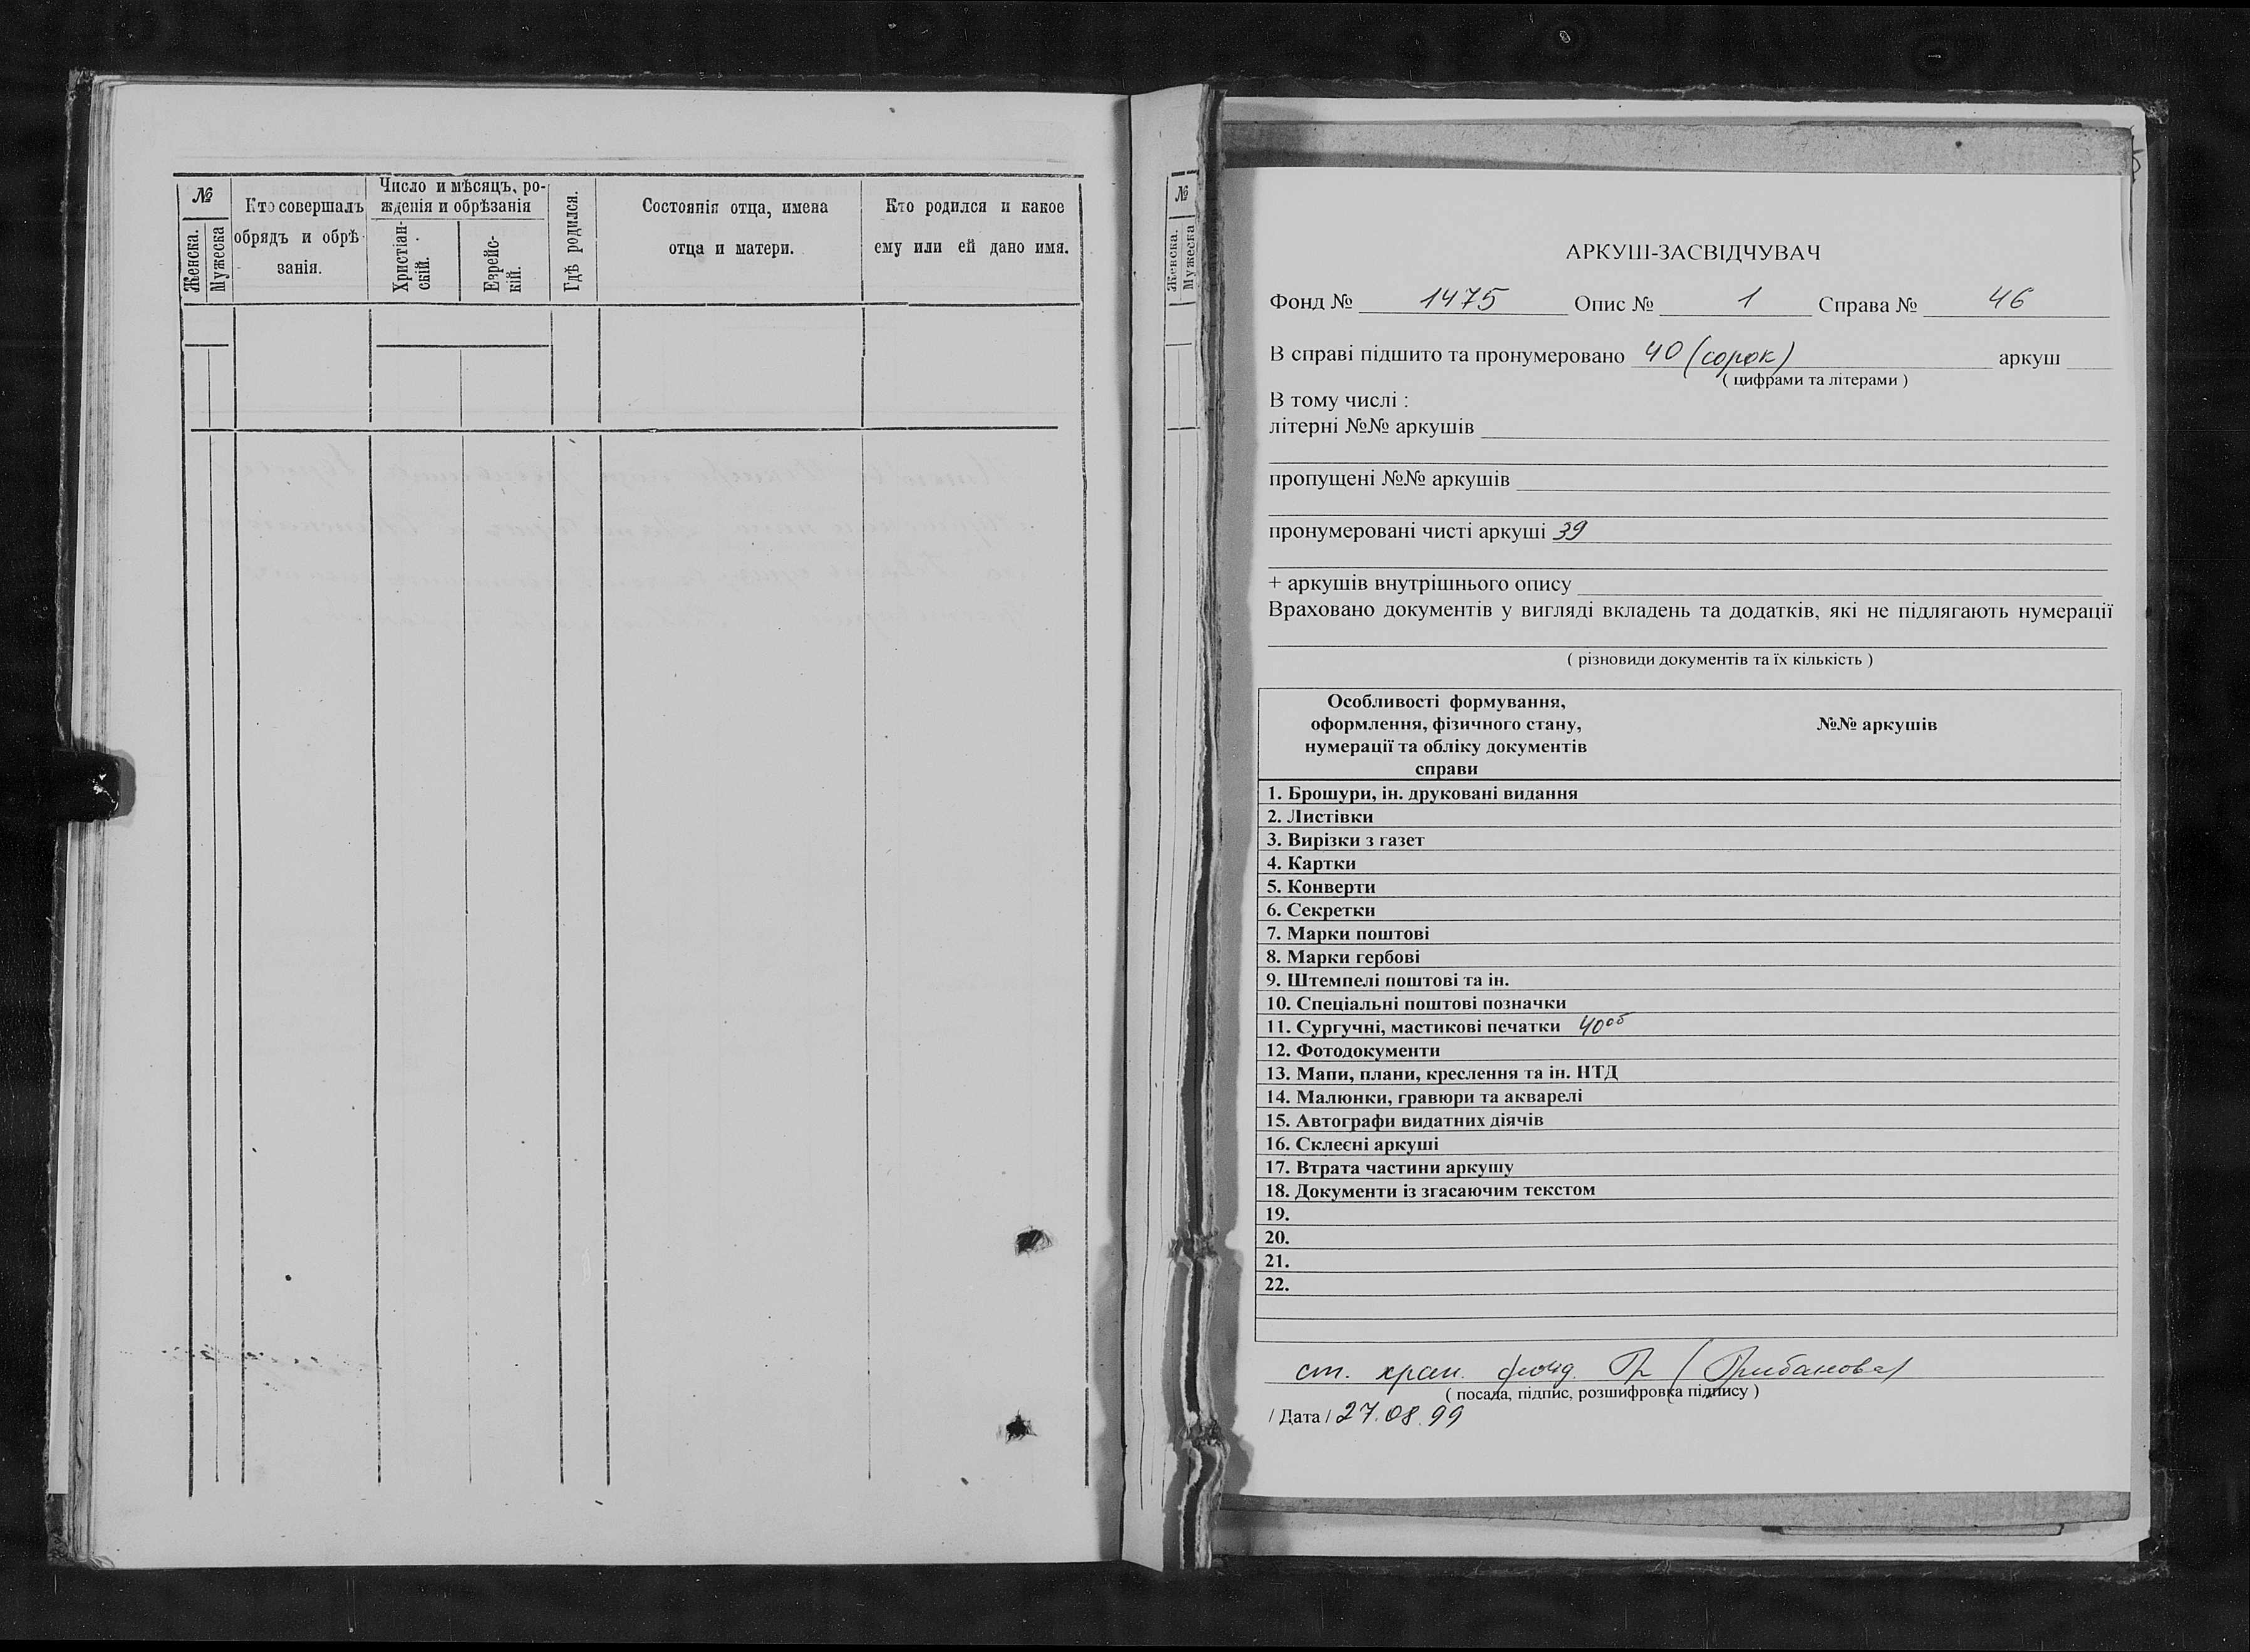 №
Женска.
Мужеска
Кто совершалъ
обрядъ и обрѣ
занія.
Число и мѣсяцъ, ро-
жденія и обрѣзанія
Христіан-
скій.
Еврейс-
кій.
Гдѣ родился.
Состоянія отца, имена
отца и матери.
Кто родился и какое
ему или ей дано имя.
№
Женска.
Мужеска
АРКУШ-ЗАСВІДЧУВАЧ
Фонд № 1475 Опис № 1 Справа № 46
В справі підшито та пронумеровано 40 (сорок) аркуш
( цифрами та літерами )
В тому числі :
літерні №№ аркушів
пропущені №№ аркушів
пронумеровані чисті аркуші 39
+ аркушів внутрішнього опису
Враховано документів у вигляді вкладень та додатків, які не підлягають нумерації
( різновиди документів та їх кількість )
Особливості формування,
оформлення, фізичного стану,
нумерації та обліку документів
справи
№№ аркушів
1. Брошури, ін. друковані видання
2. Листівки
3. Вирізки з газет
4. Картки
5. Конверти
6. Секретки
7. Марки поштові
8. Марки гербові
9. Штемпелі поштові та ін.
10. Спеціальні поштові позначки
11. Сургучні, мастикові печатки 40об
12. Фотодокументи
13. Мапи, плани, креслення та ін. НТД
14. Малюнки, гравюри та акварелі
15. Автографи видатних діячів
16. Склеєні аркуші
17. Втрата частини аркушу
18. Документи із згасаючим текстом
19.
20.
21.
22.
ст. хран. фонд.
( посада, підпис, розшифровка підпису )
/ Дата / 27.08.99